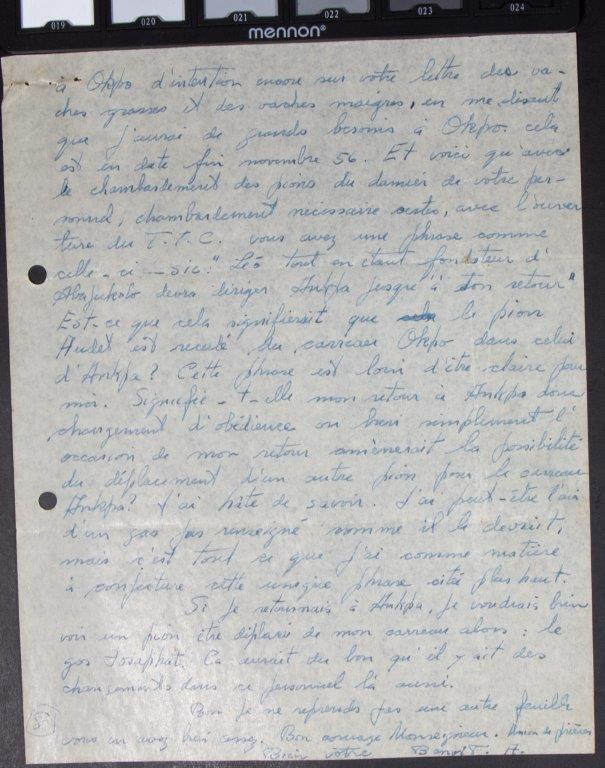 019 020 021 022 023 024
mennon®
à Okpo d'intention encore sur votre lettre des va-
ches grasses et des vaches maigres, en me disant
que j'aurai de grands besoins à Okpo. cela
est en date fin novembre 56. Et voici qu'avec
le chambardement des pions du damier de votre per-
sonnel, chambardement nécessaire certes, avec l'ouver
ture du T.T.C. vous avez une phrase comme
celle-ci - sic: "Léo tout en étant fondateur d'
devra diriger Ankpa jusqu'à ton retour"
Est-ce que cela signifierait que le pion
Audet est reculé du carreau Okpo dans celui
d'Ankpa? Cette phrase est loin d'être claire pour
moi. Signifie-t-elle mon retour à Ankpa donc
changement d'obédience ou bien simplement l'
occasion de mon retour amènerait la possibilité
du déplacement d'un autre pion pour le carreau
Ankpa? J'ai hâte de savoir. J'ai peut-être l'air
d'un gas pas renseigné comme il le devrait,
mais c'est tout ce que j'ai comme matière
à conjecture cette unique phrase citée plus haut.
Si je retournais à Ankpa, je voudrais bien
voir un pion être déplacé de mon carreau alors: le
gas Josaphat. Ca aurait du bon qu'il y ait des
changements dans ce personnel là aussi.
Bon je ne reprends pas une autre feuille
vous en avez bien assez. Bon courage Monseigneur. Union de prières
5
Bien vôtre Benoit. A.